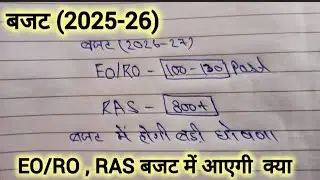 बजट (2025-26)
बजट (2026-27)
EO/RO - 100-130 Post
RAS - 800+
बजट में होगी बडी घोषणा
EO/RO , RAS बजट में आएगी क्या